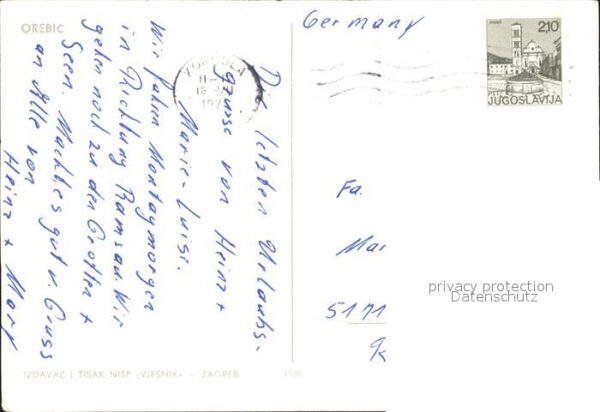 OREBIĆ
Die letzten Urlaubs-
grüsse von Heinz +
Marie-Luise.
Wir fahren Montagmorgen
in Richtung Ramsau. Wir
gehen noch zu den Grotten +
Seen. Machts gut u. Gruss
an Alle von
Heinz + Marl
KORČULA
Germany
2,10
JUGOSLAVIJA
Fa.
Mai
5171
privacy protection
Datenschutz
IZDAVAČ I TISAK NIŠP «VJESNIK» – ZAGREB